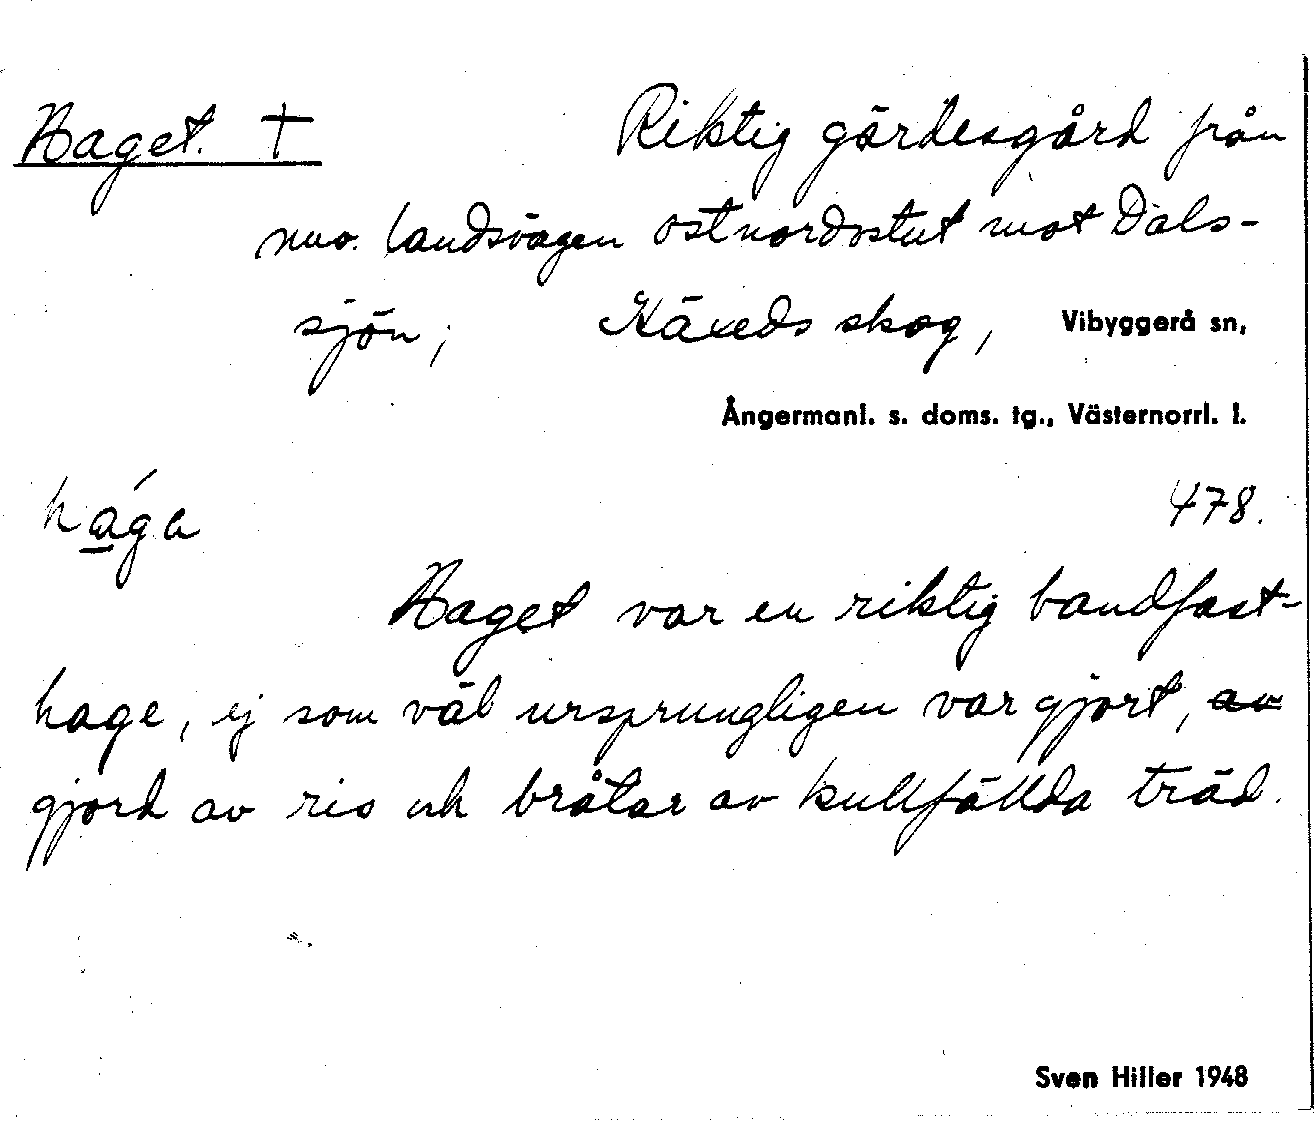 Haget. †
Riktig gärdesgård från
nuv. landsvägen ostnordostut mot Dals-
sjön; Häxeds skog, Vibyggerå sn,
Ångermanl. s. doms. tg., Västernorrl. l.
hága
478.
Haget var en riktig bandfast-
hage, ej som väl ursprungligen var gjort, av
gjord av ris och bråtar av kullfällda träd.
Sven Hiller 1948